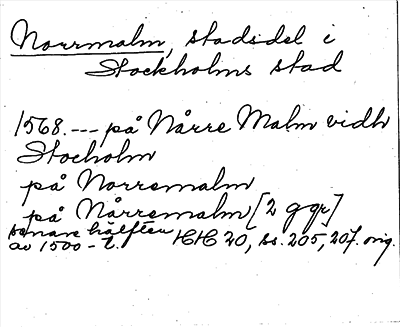 Norrmalm, stadsdel i
Stockholms stad
1568. --- på Nårre Malm vidh
Stocholm
på Norremalm
på Nårremalm [2 ggr]
senare hälften HH 20, ss. 205, 207. orig.
av 1500-t.